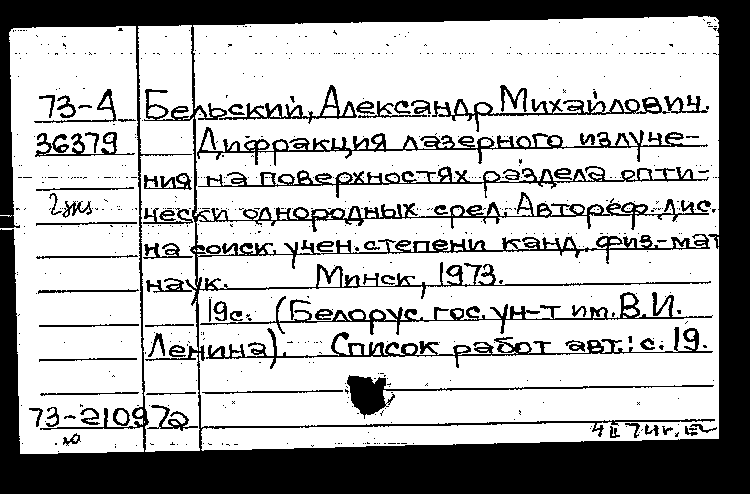 73-А Бельский, Александр Михайлович.
36379 Дифракция лазерного излуче-
ния на поверхностях раздела опти-
2 экз чески однородных сред. Автореф. дис.
на соиск. учен. степени канд. физ.-мат
наук. Минск, 1973.
19с. (Белорус. гос. ун-т им. В.И.
Ленина). Список работ авт.: с. 19.
73-21097а